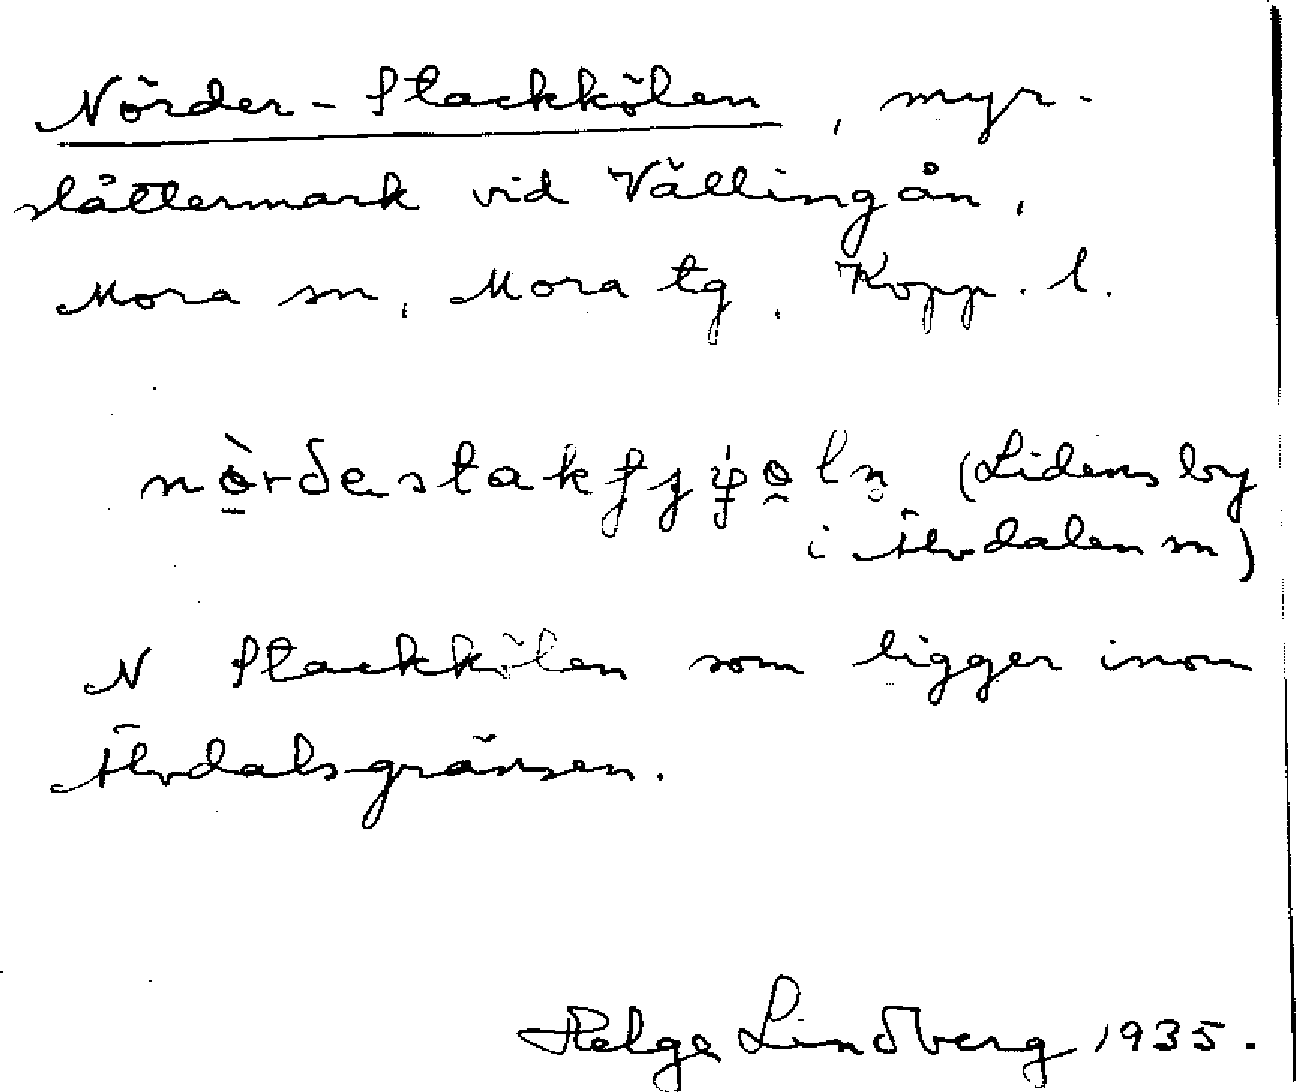 Nörder-Stackkölen, myr-
slåttermark vid Vällingån,
Mora sn, Mora tg. Kopp. l.
(Lidens by
i Älvdalen sn)
N Stackkölen som ligger inom
Älvdalsgränsen.
Helge Lindberg 1935.